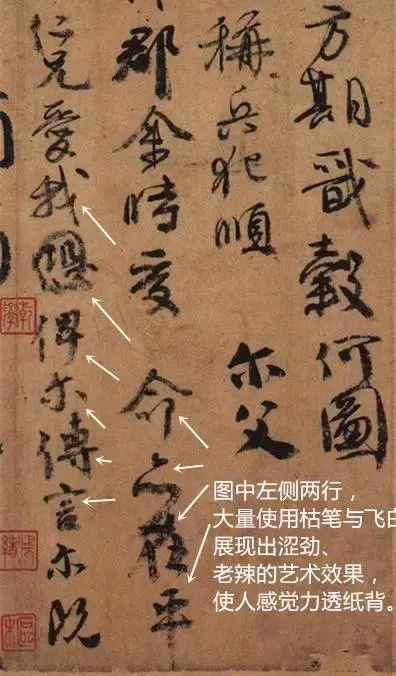 方期戩穀何圖
稱兵犯順 尔父
郡余時受命亦在平
仁兄愛我俾尔傳言尔既
图中左侧两行，
大量使用枯笔与飞白
展现出涩劲、
老辣的艺术效果，
使人感觉力透纸背。